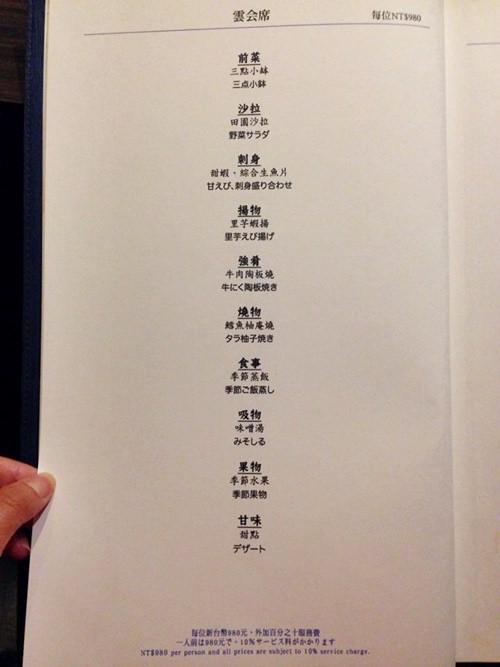 雲会席
每位NT$980
前菜
三點小缽
三点小鉢
沙拉
田園沙拉
野菜サラダ
刺身
甜蝦、綜合生魚片
甘えび、刺身盛り合わせ
揚物
里芋蝦揚
里芋えび揚げ
強肴
牛肉陶板燒
牛にく陶板焼き
燒物
鱈魚柚庵燒
タラ柚子焼き
食事
季節蒸飯
季節ご飯蒸し
吸物
味噌湯
みそしる
果物
季節水果
季節果物
甘味
甜點
デザート
每位新台幣980元，外加百分之十服務費
一人前は980元で、10%サービス料がかかります
NT$980 per person and all prices are subject to 10% service charge.